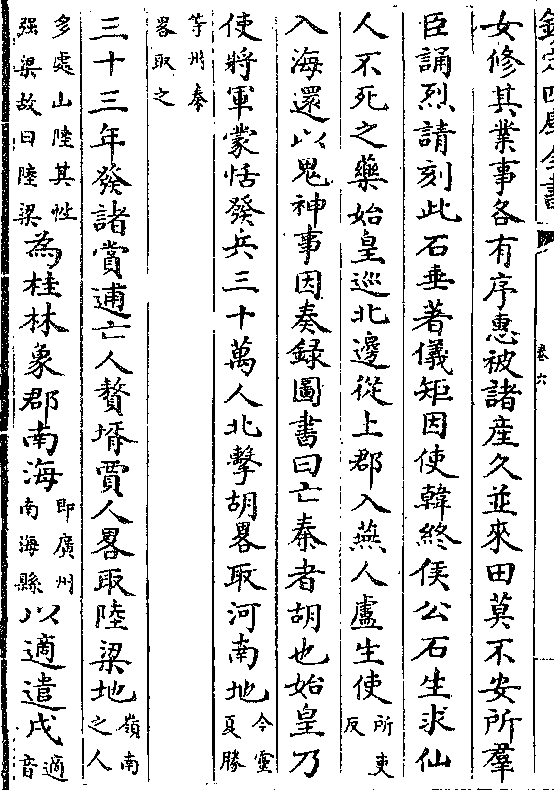 欽定四庫全書
卷六
女修其業事各有序惠被諸産久並來田莫不安所羣
臣誦烈請刻此石垂著儀矩因使韓終侯公石生求仙
人不死之藥始皇巡北邊從上郡入燕人盧生使所吏反
入海還以鬼神事因奏録圖書曰亡秦者胡也始皇乃
使將軍蒙恬發兵三十萬人北擊胡畧取河南地今靈夏勝
等州秦畧取之
三十三年發諸嘗逋亡人贅壻賈人畧取陸梁地嶺南之人
多處山陸其性强梁故曰陸梁為桂林象郡南海即廣州南海縣以適遣戍適音